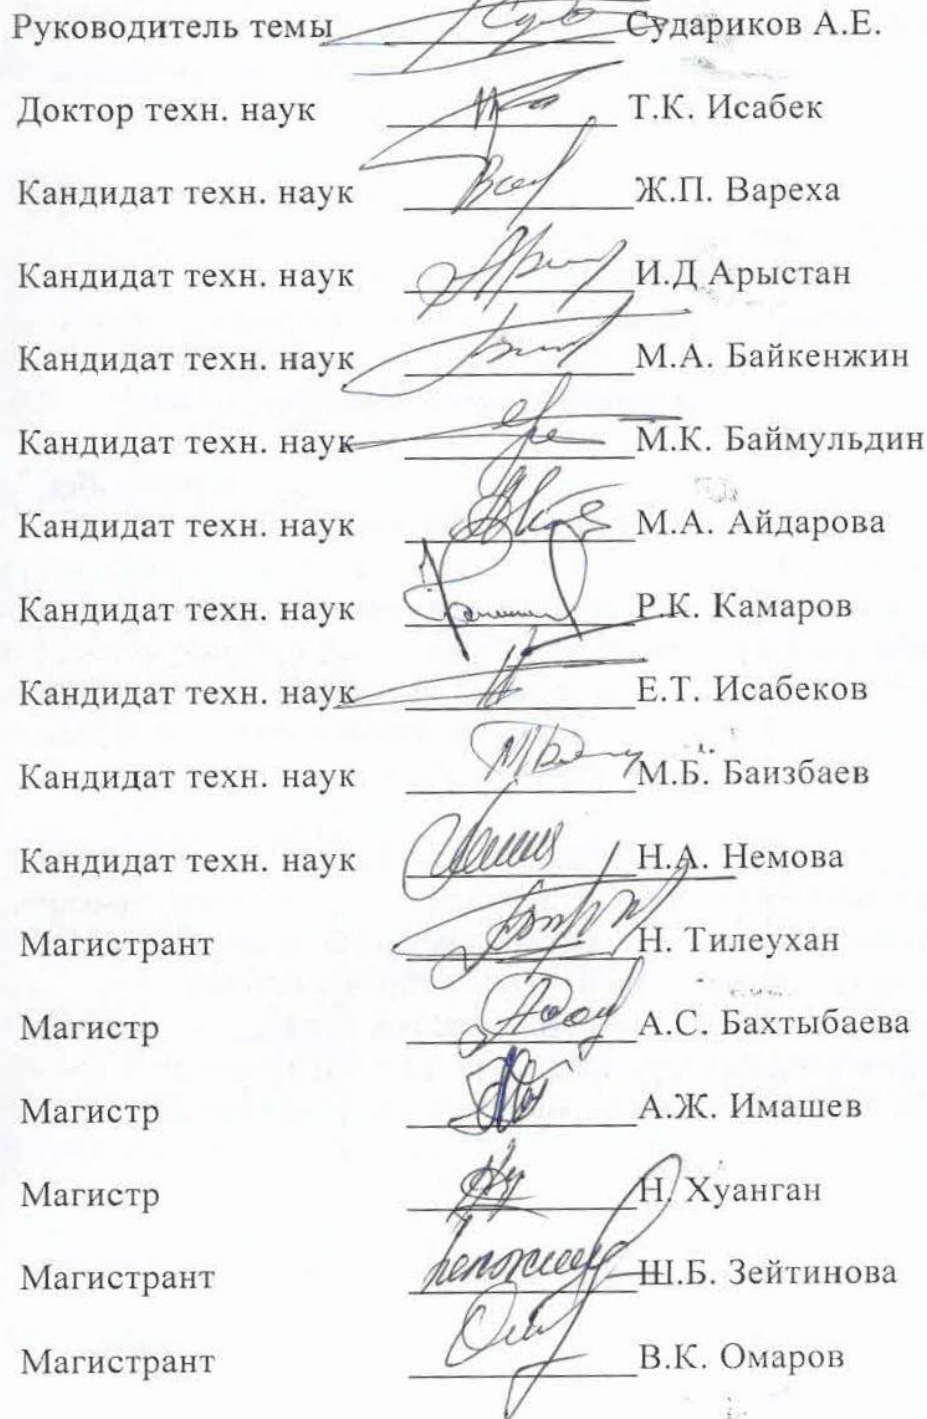 Руководитель темы Судариков А.Е.
Доктор техн. наук Т.К. Исабек
Кандидат техн. наук Ж.П. Вареха
Кандидат техн. наук И.Д Арыстан
Кандидат техн. наук М.А. Байкенжин
Кандидат техн. наук М.К. Баймульдин
Кандидат техн. наук М.А. Айдарова
Кандидат техн. наук Р.К. Камаров
Кандидат техн. наук Е.Т. Исабеков
Кандидат техн. наук М.Б. Баизбаев
Кандидат техн. наук Н.А. Немова
Магистрант Н. Тилеухан
Магистр А.С. Бахтыбаева
Магистр А.Ж. Имашев
Магистр Н. Хуанган
Магистрант Ш.Б. Зейтинова
Магистрант В.К. Омаров